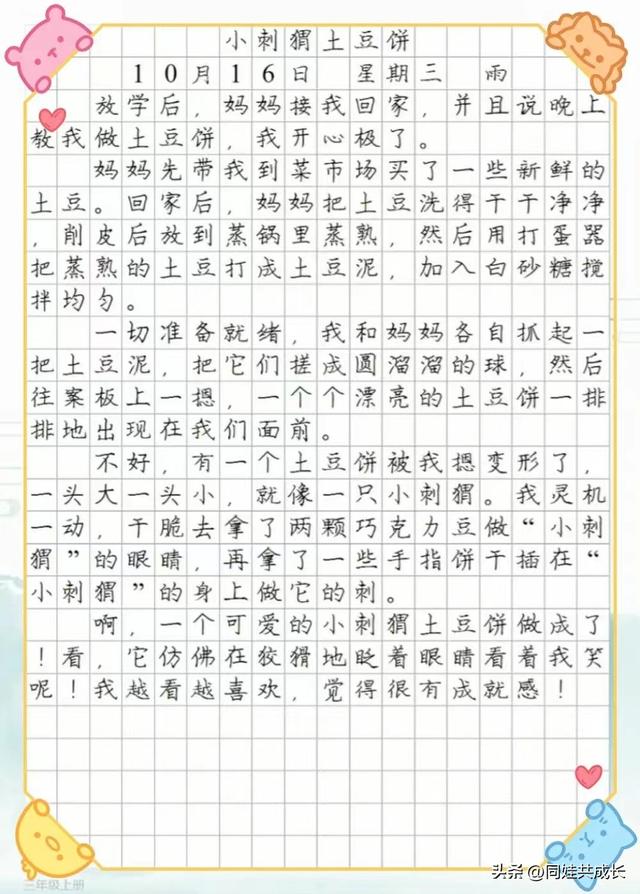 小刺猬土豆饼
10月16日 星期三 雨
放学后，妈妈接我回家，并且说晚上
教我做土豆饼，我开心极了。
妈妈先带我到菜市场买了一些新鲜的
土豆。回家后，妈妈把土豆洗得干干净净
，削皮后放到蒸锅里蒸熟，然后用打蛋器
把蒸熟的土豆打成土豆泥，加入白砂糖搅
拌均匀。
一切准备就绪，我和妈妈各自抓起一
把土豆泥，把它们搓成圆溜溜的球，然后
往案板上一摁，一个个漂亮的土豆饼一排
排地出现在我们面前。
不好，有一个土豆饼被我摁变形了，
一头大一头小，就像一只小刺猬。我灵机
一动，干脆去拿了两颗巧克力豆做“小刺
猬”的眼睛，再拿了一些手指饼干插在“
小刺猬”的身上做它的刺。
啊，一个可爱的小刺猬土豆饼做成了
！看，它仿佛在狡猾地眨着眼睛看着我笑
呢！我越看越喜欢，觉得很有成就感！
三年级上册
头条 @同娃共成长